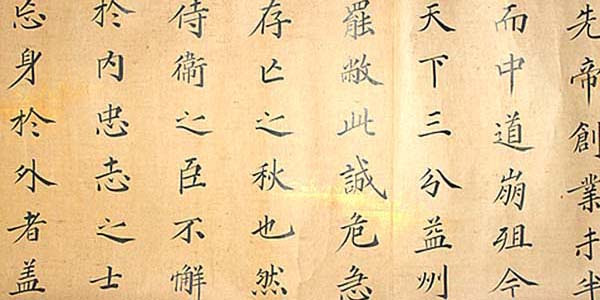 先帝創業未半
而中道崩殂今
天下三分益州
罷敝此誠危急
存亡之秋也然
侍衛之臣不懈
於内忠志之士
忘身於外者盖